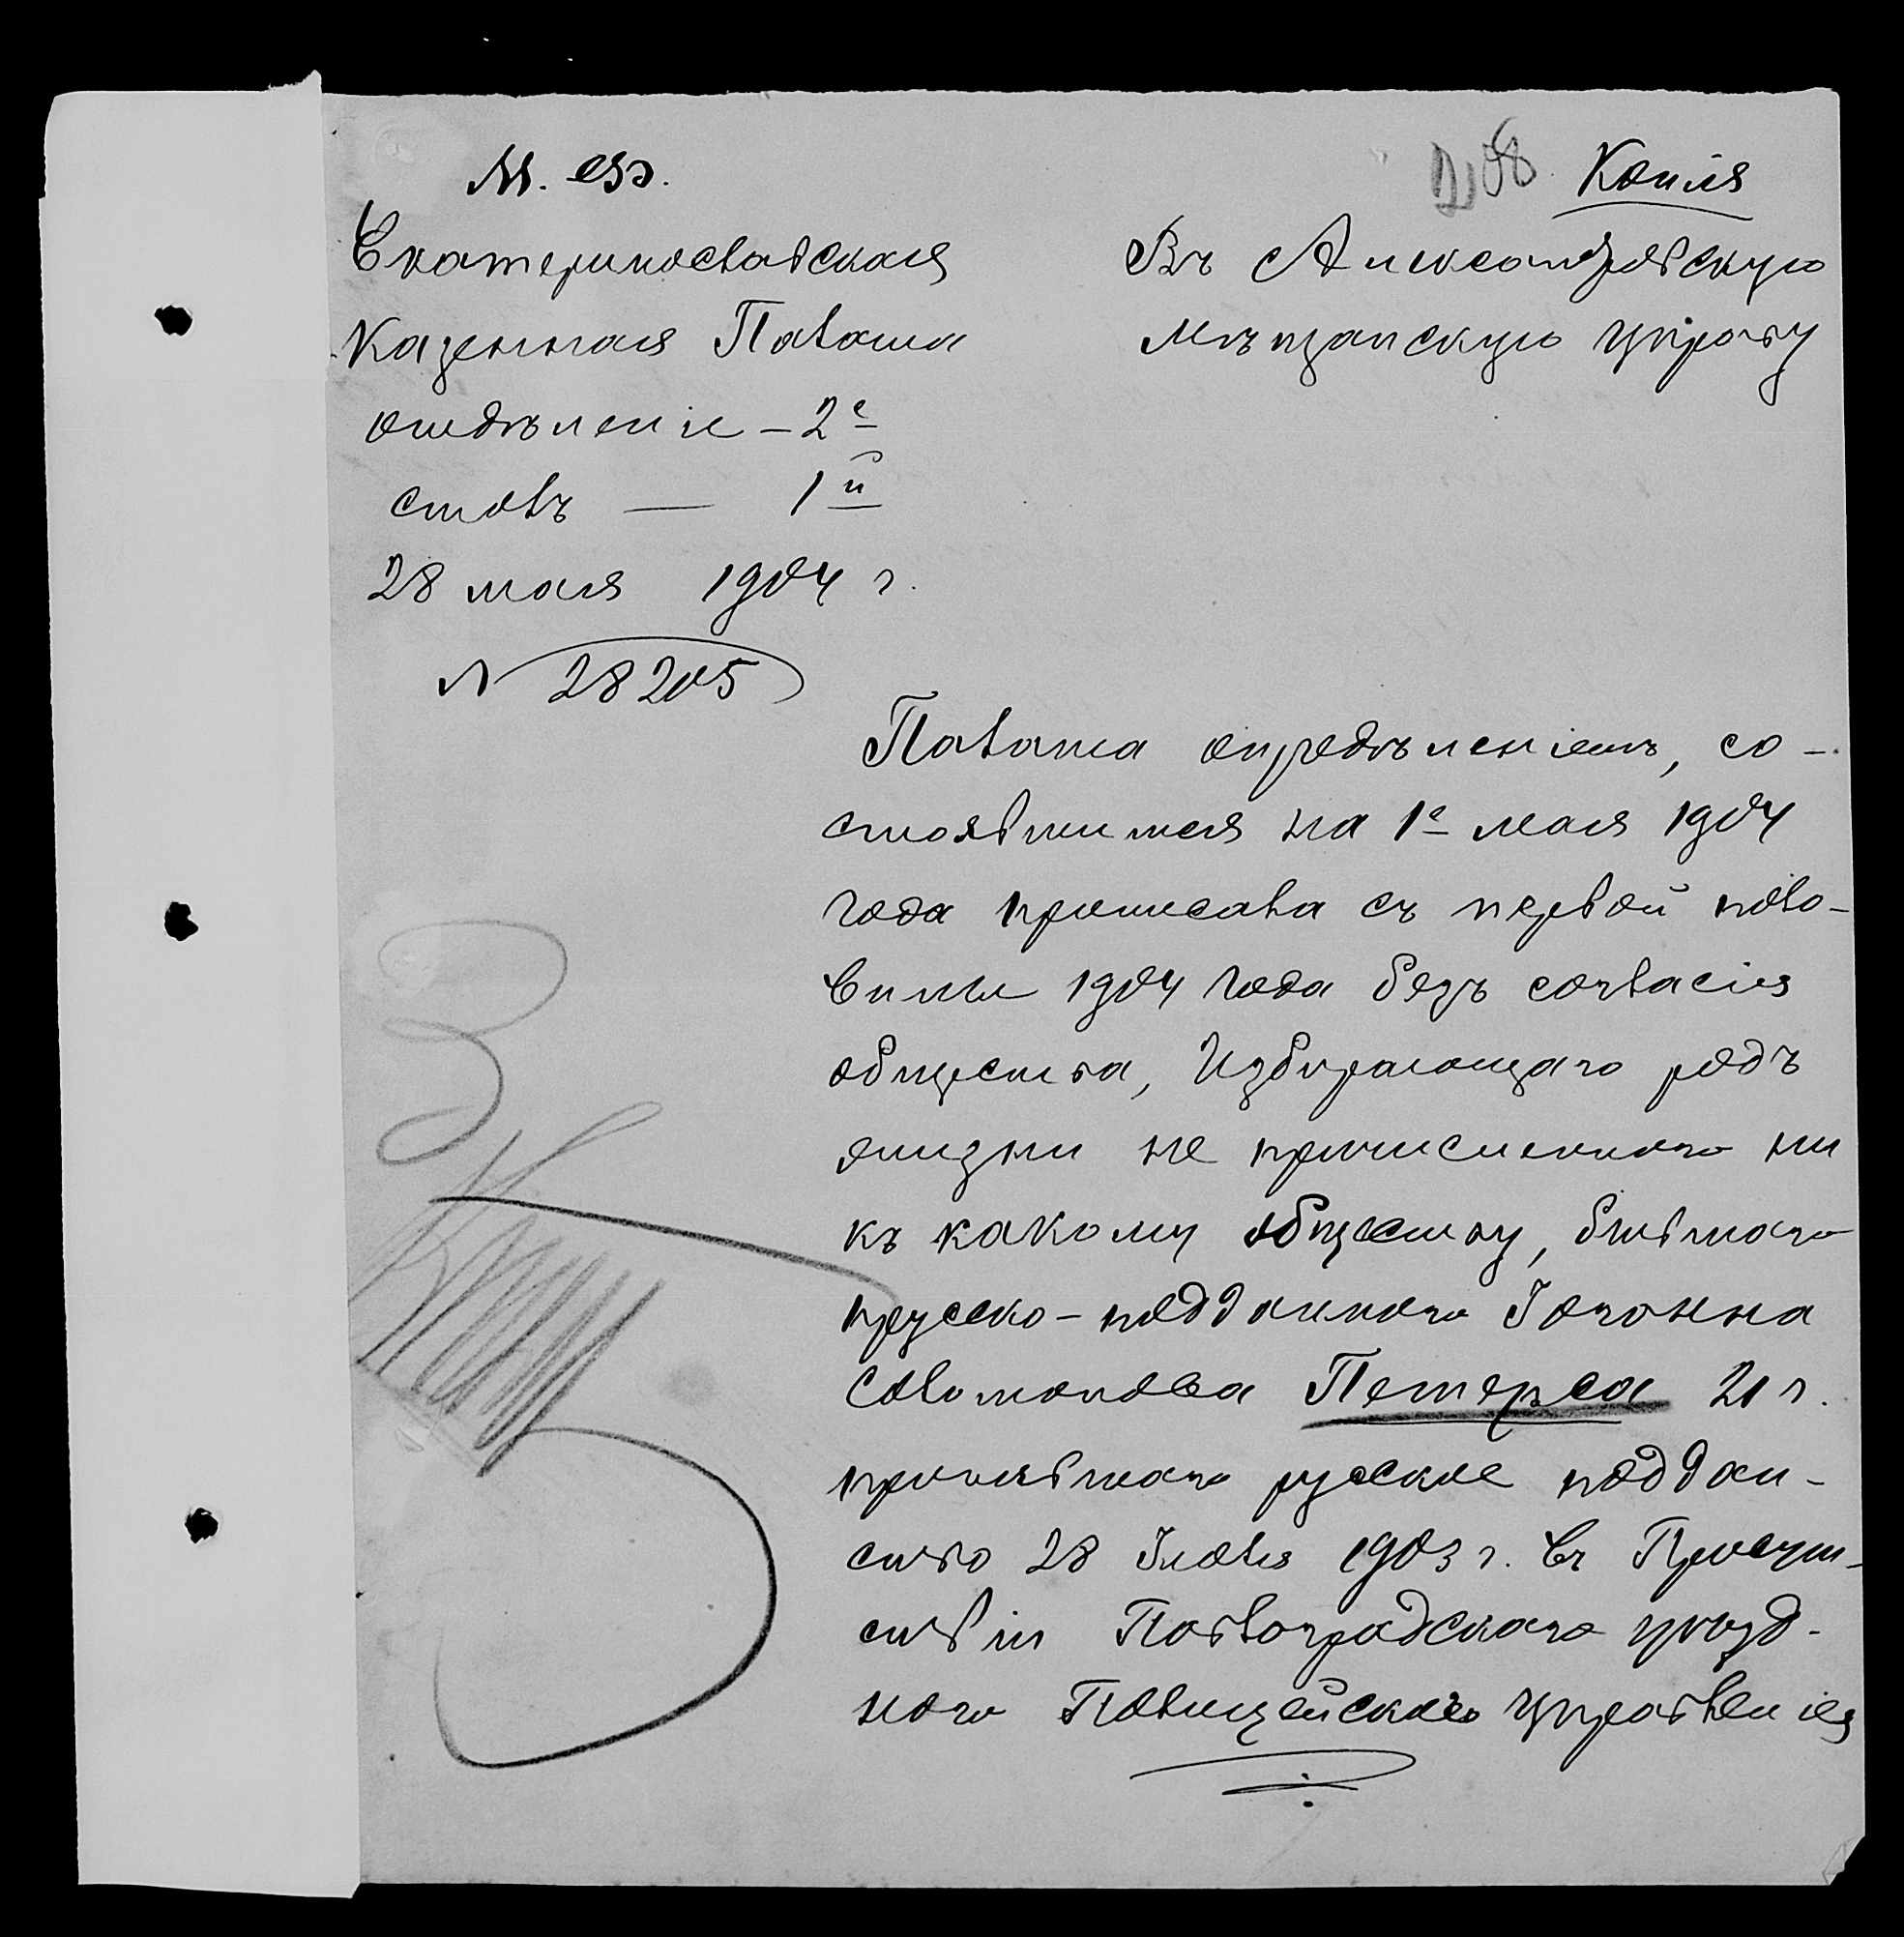 М. Ф.
Копія
Екатеринославская
Казенная Палата
отдѣленіе – 2е
столъ — 1й
28 мая 1904 г.
N 28205
Въ Александровскую
Мѣщанскую Управу
Палата опредѣленіемъ, со-
стоявшимся на 1е мая 1904
года приписала съ первой поло-
вины 1904 года безъ согласія
общества, Избирающаго родъ
жизни не причисленнаго ни
къ какому обществу, бывшаго
прусско-подданнаго Іоганна
Соломонова Петерса 21 г.
принявшаго русское поддан-
ство 28 Іюля 1903 г. въ Присут-
ствіи Павлоградскаго уѣзд-
наго Полицейскаго Управленія